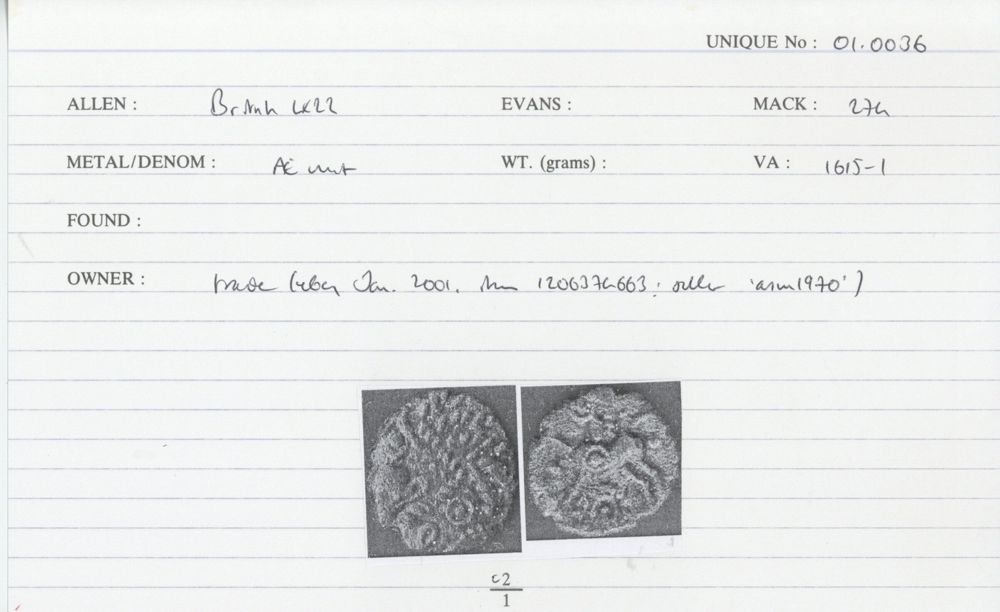 UNIQUE No : 01.0036
ALLEN : British LX22 EVANS : MACK : 274
METAL/DENOM : Æ unit WT. (grams) : VA : 1615-1
FOUND :
OWNER : trade (eBay Jan. 2001. item 1206374663; seller 'asm1970')
c2
1